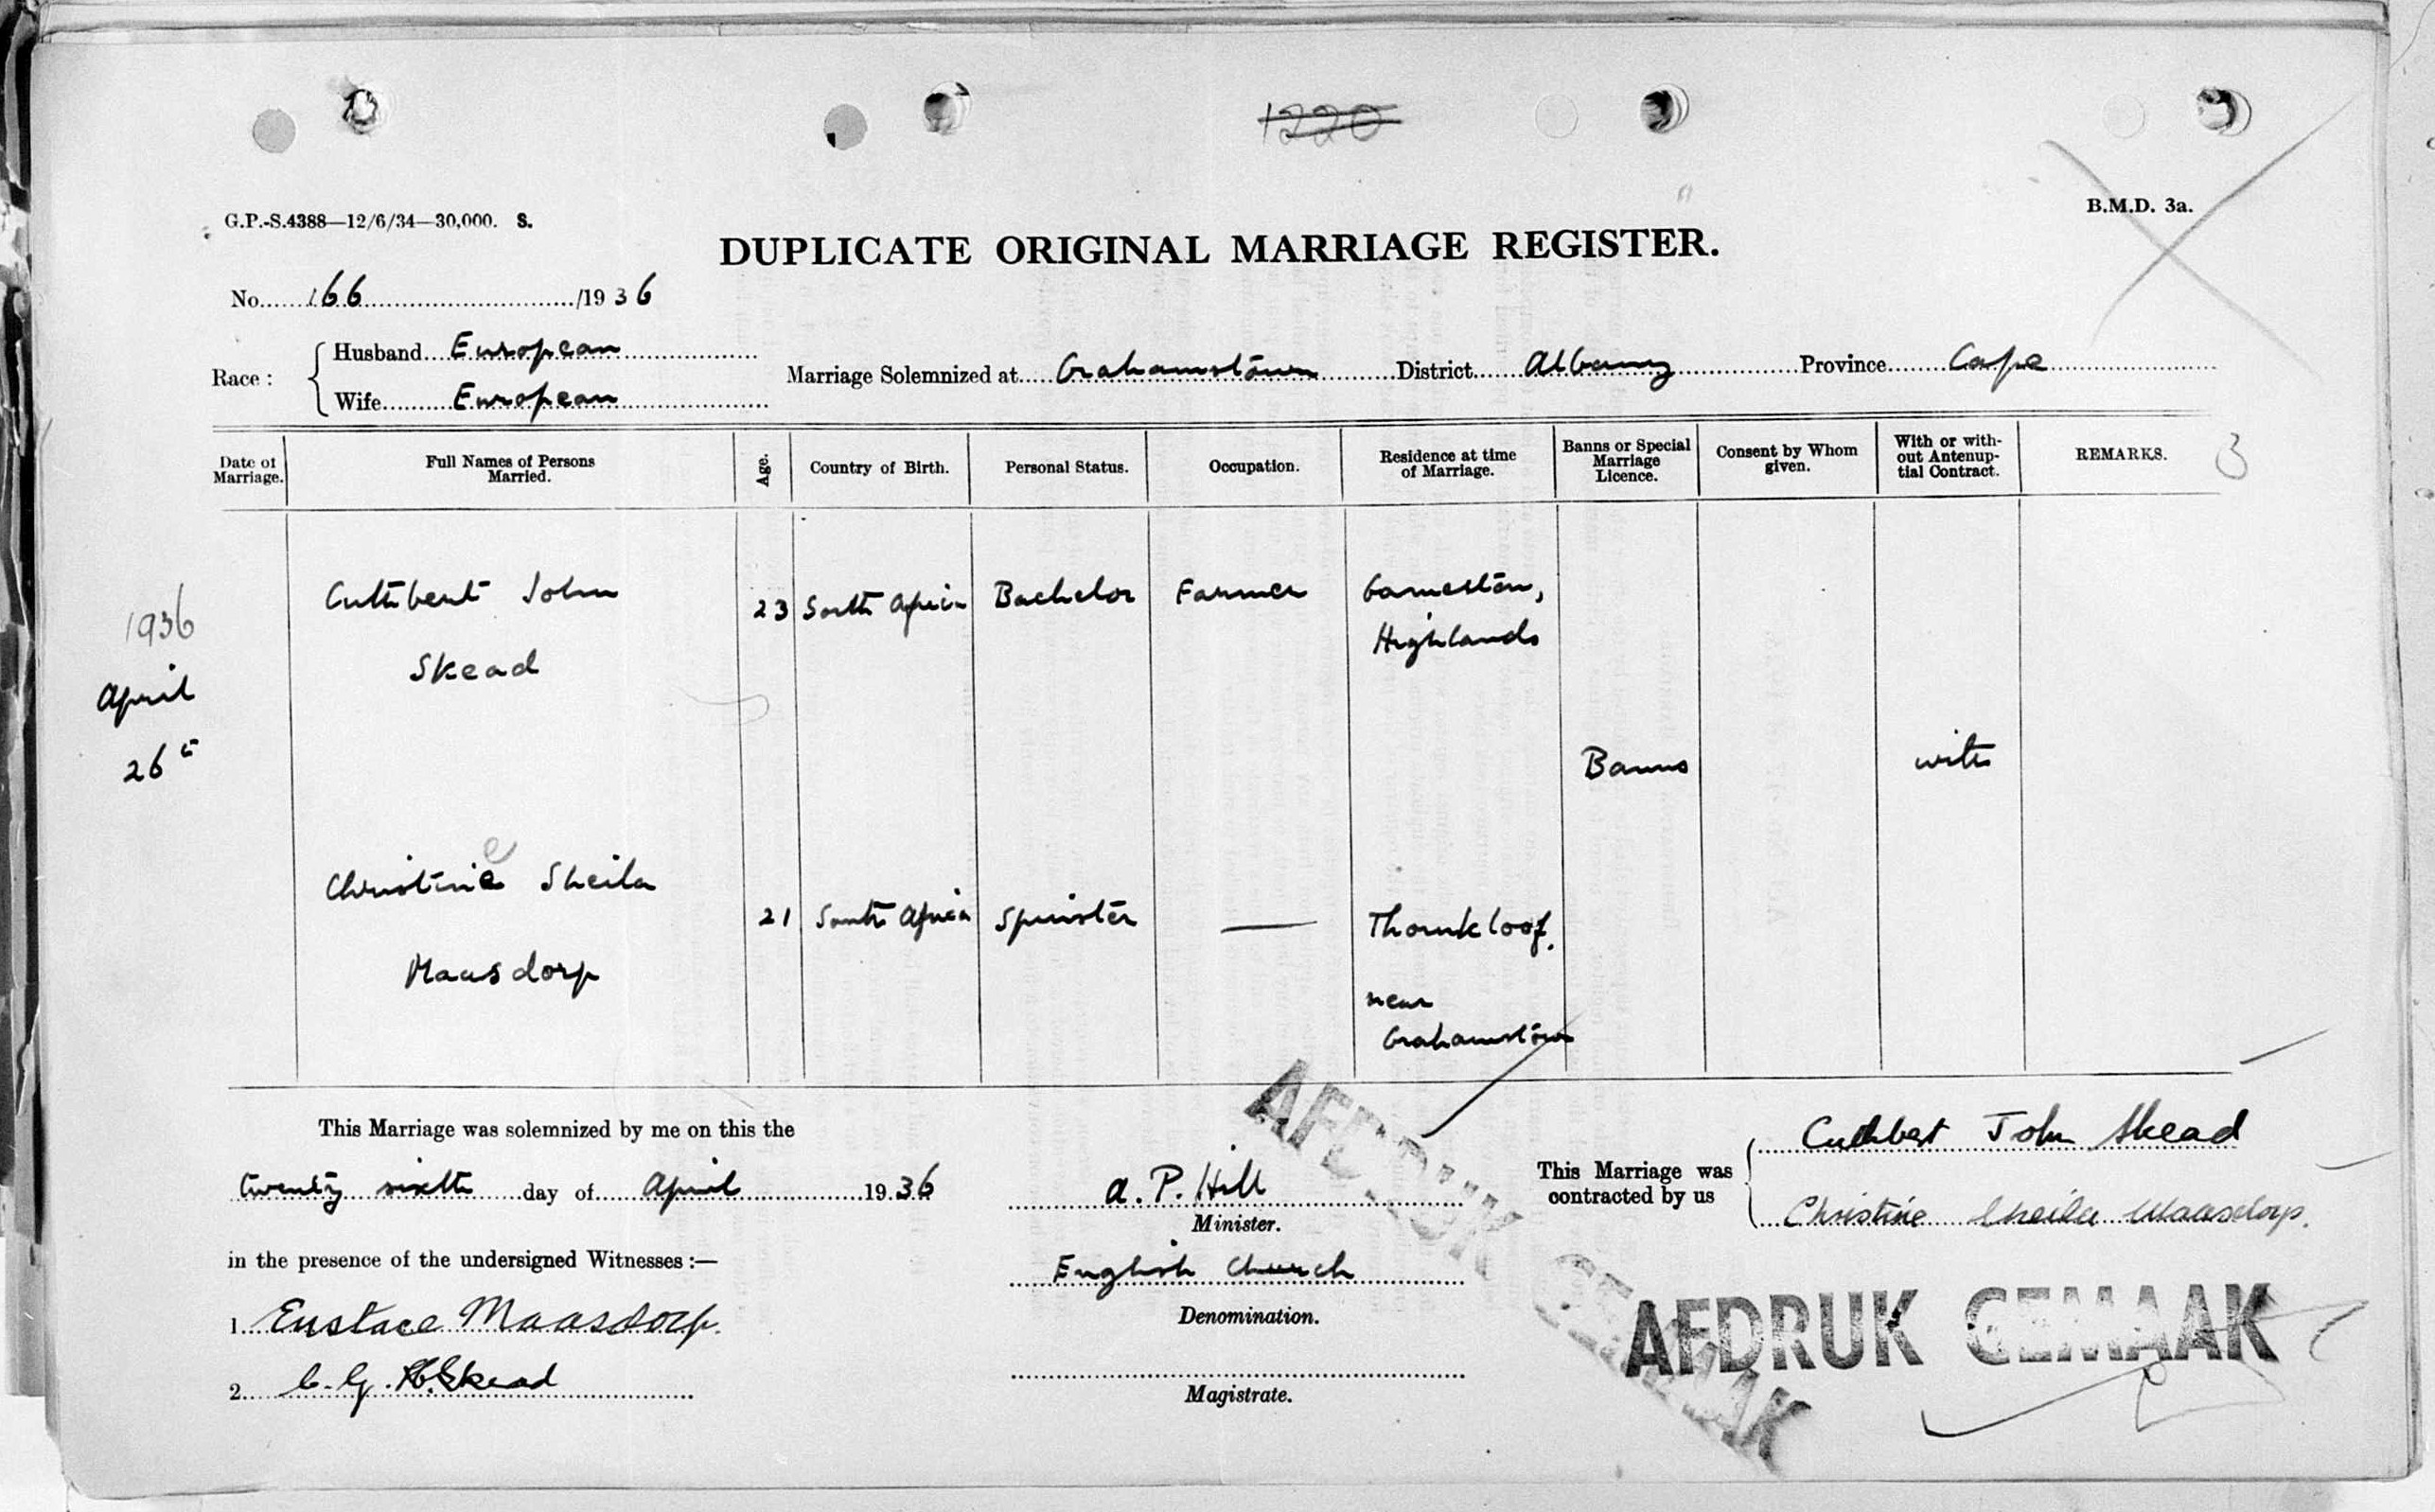 1220
G.P.-S.4388—12/6/34—30,000. S.
B.M.D. 3a.
DUPLICATE ORIGINAL MARRIAGE REGISTER.
No. 166 /1936
Race: Husband European
Wife European
Marriage Solemnized at Grahamstown District Albany Province Cape
Date of Marriage. Full Names of Persons Married. Age. Country of Birth. Personal Status. Occupation. Residence at time of Marriage. Banns or Special Marriage Licence. Consent by Whom given. With or without Antenuptial Contract. REMARKS. 3
1936
April
26th
Cuthbert John
Skead
23 South Africa Bachelor Farmer
Highlands
Banns with
Christine Sheila
Maasdorp
21 South Africa Spinster — Thornkloof,
near
Grahamstown
This Marriage was solemnized by me on this the
twenty sixth day of April 1936
in the presence of the undersigned Witnesses :—
1. Eustace Maasdorp.
2. C. G. Skead
A. P. Hill
Minister.
English Church
Denomination.
Magistrate.
This Marriage was contracted by us
Cuthbert John Skead
Christine Sheila Maasdorp.
AFDRUK GEMAAK
AFDRUK GEMAAK